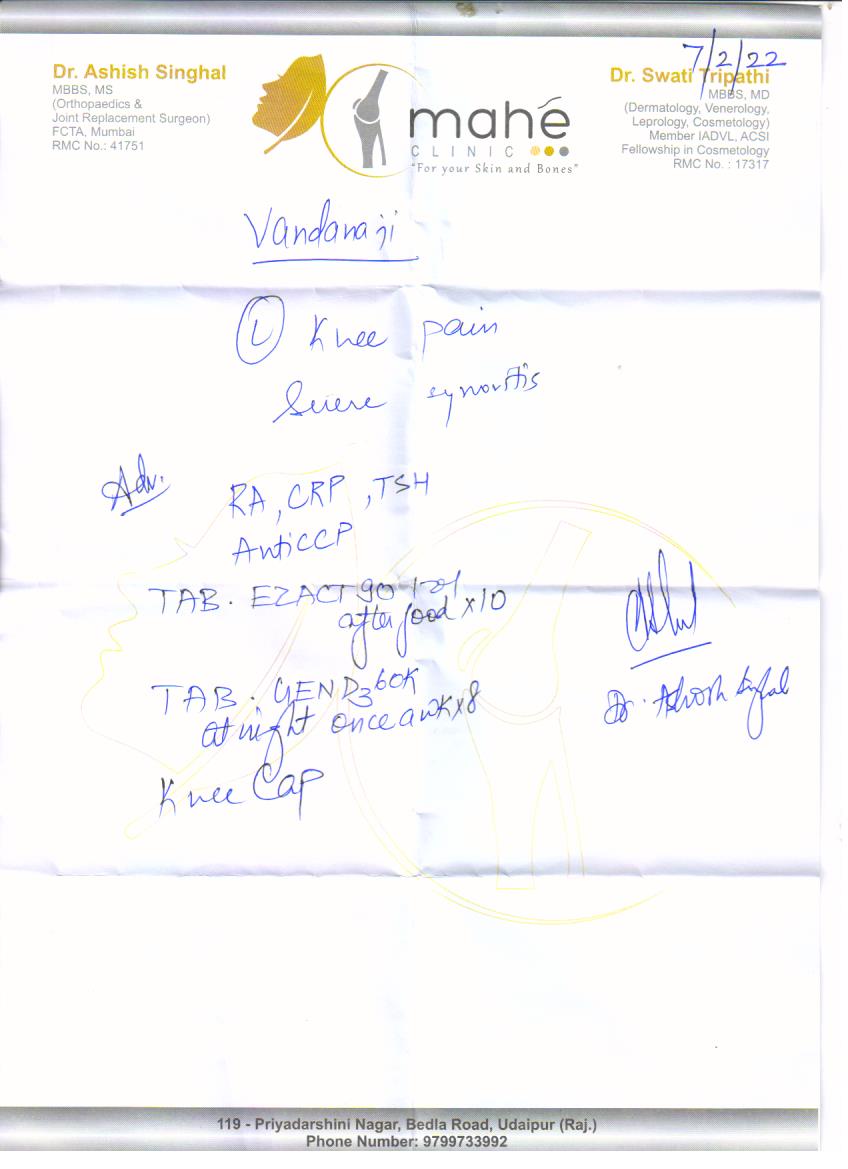 7/2/22
Dr. Ashish Singhal
MBBS, MS
(Orthopaedics &
Joint Replacement Surgeon)
FCTA, Mumbai
RMC No.: 41751
mahé
CLINIC
"For your Skin and Bones"
Dr. Swati Tripathi
MBBS, MD
(Dermatology, Venerology,
Leprology, Cosmetology)
Member IADVL, ACSI
Fellowship in Cosmetology
RMC No. : 17317
Vandana ji
(L) Knee pain
Severe synovitis
Adv.
RA, CRP, TSH
Anti CCP
TAB. EZACT 90 1 od
after food x 10
TAB. GEN D3 60K
at night once a wk x 8
Knee Cap
Dr. Ashish Singhal
119 - Priyadarshini Nagar, Bedla Road, Udaipur (Raj.)
Phone Number: 9799733992